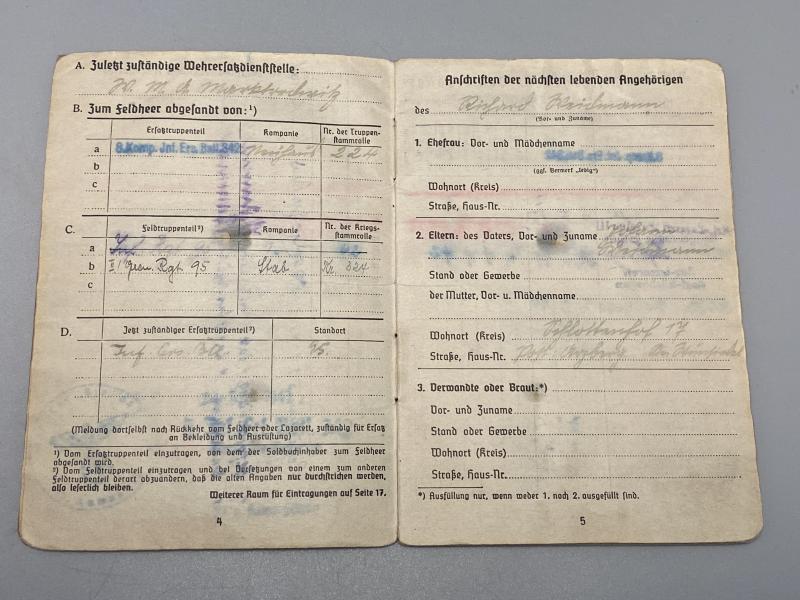 A. Zuletzt zuständige Wehrersatzdienststelle:
W. M. A. Marktredwitz
B. Zum Feldheer abgesandt von:¹)
Ersatztruppenteil Kompanie Nr. der Truppenstammrolle
a 8.Komp. Inf. Ers. Batl. 342 224
b
c
C. Feldtruppenteil²) Kompanie Nr. der Kriegsstammrolle
a Inf. Rgt.
b II./Gren. Rgt 95 Stab Nr. 324
c
D. Jetzt zuständiger Ersatztruppenteil²) Standort
Inf. Ers. Btl. 95.
(Meldung dortselbst nach Rückkehr vom Feldheer oder Lazarett, zuständig für Ersatz
an Bekleidung und Ausrüstung)
¹) Vom Ersatztruppenteil einzutragen, von dem der Soldbuchinhaber zum Feldheer
abgesandt wird.
²) Vom Feldtruppenteil einzutragen und bei Versetzungen von einem zum anderen
Feldtruppenteil derart abzuändern, daß die alten Angaben nur durchstrichen werden,
also leserlich bleiben.
Weiterer Raum für Eintragungen auf Seite 17.
4
Anschriften der nächsten lebenden Angehörigen
des Richard
(Vor- und Zuname)
1. Ehefrau: Vor- und Mädchenname
(ggf. Vermerk „ledig")
Wohnort (Kreis)
Straße, Haus-Nr.
2. Eltern: des Vaters, Vor- und Zuname
Stand oder Gewerbe
der Mutter, Vor- u. Mädchenname
Wohnort (Kreis) Schlottenhof 17
Straße, Haus-Nr. Post Arzberg
3. Verwandte oder Braut:*)
Vor- und Zuname
Stand oder Gewerbe
Wohnort (Kreis)
Straße, Haus-Nr.
*) Ausfüllung nur, wenn weder 1. noch 2. ausgefüllt sind.
5